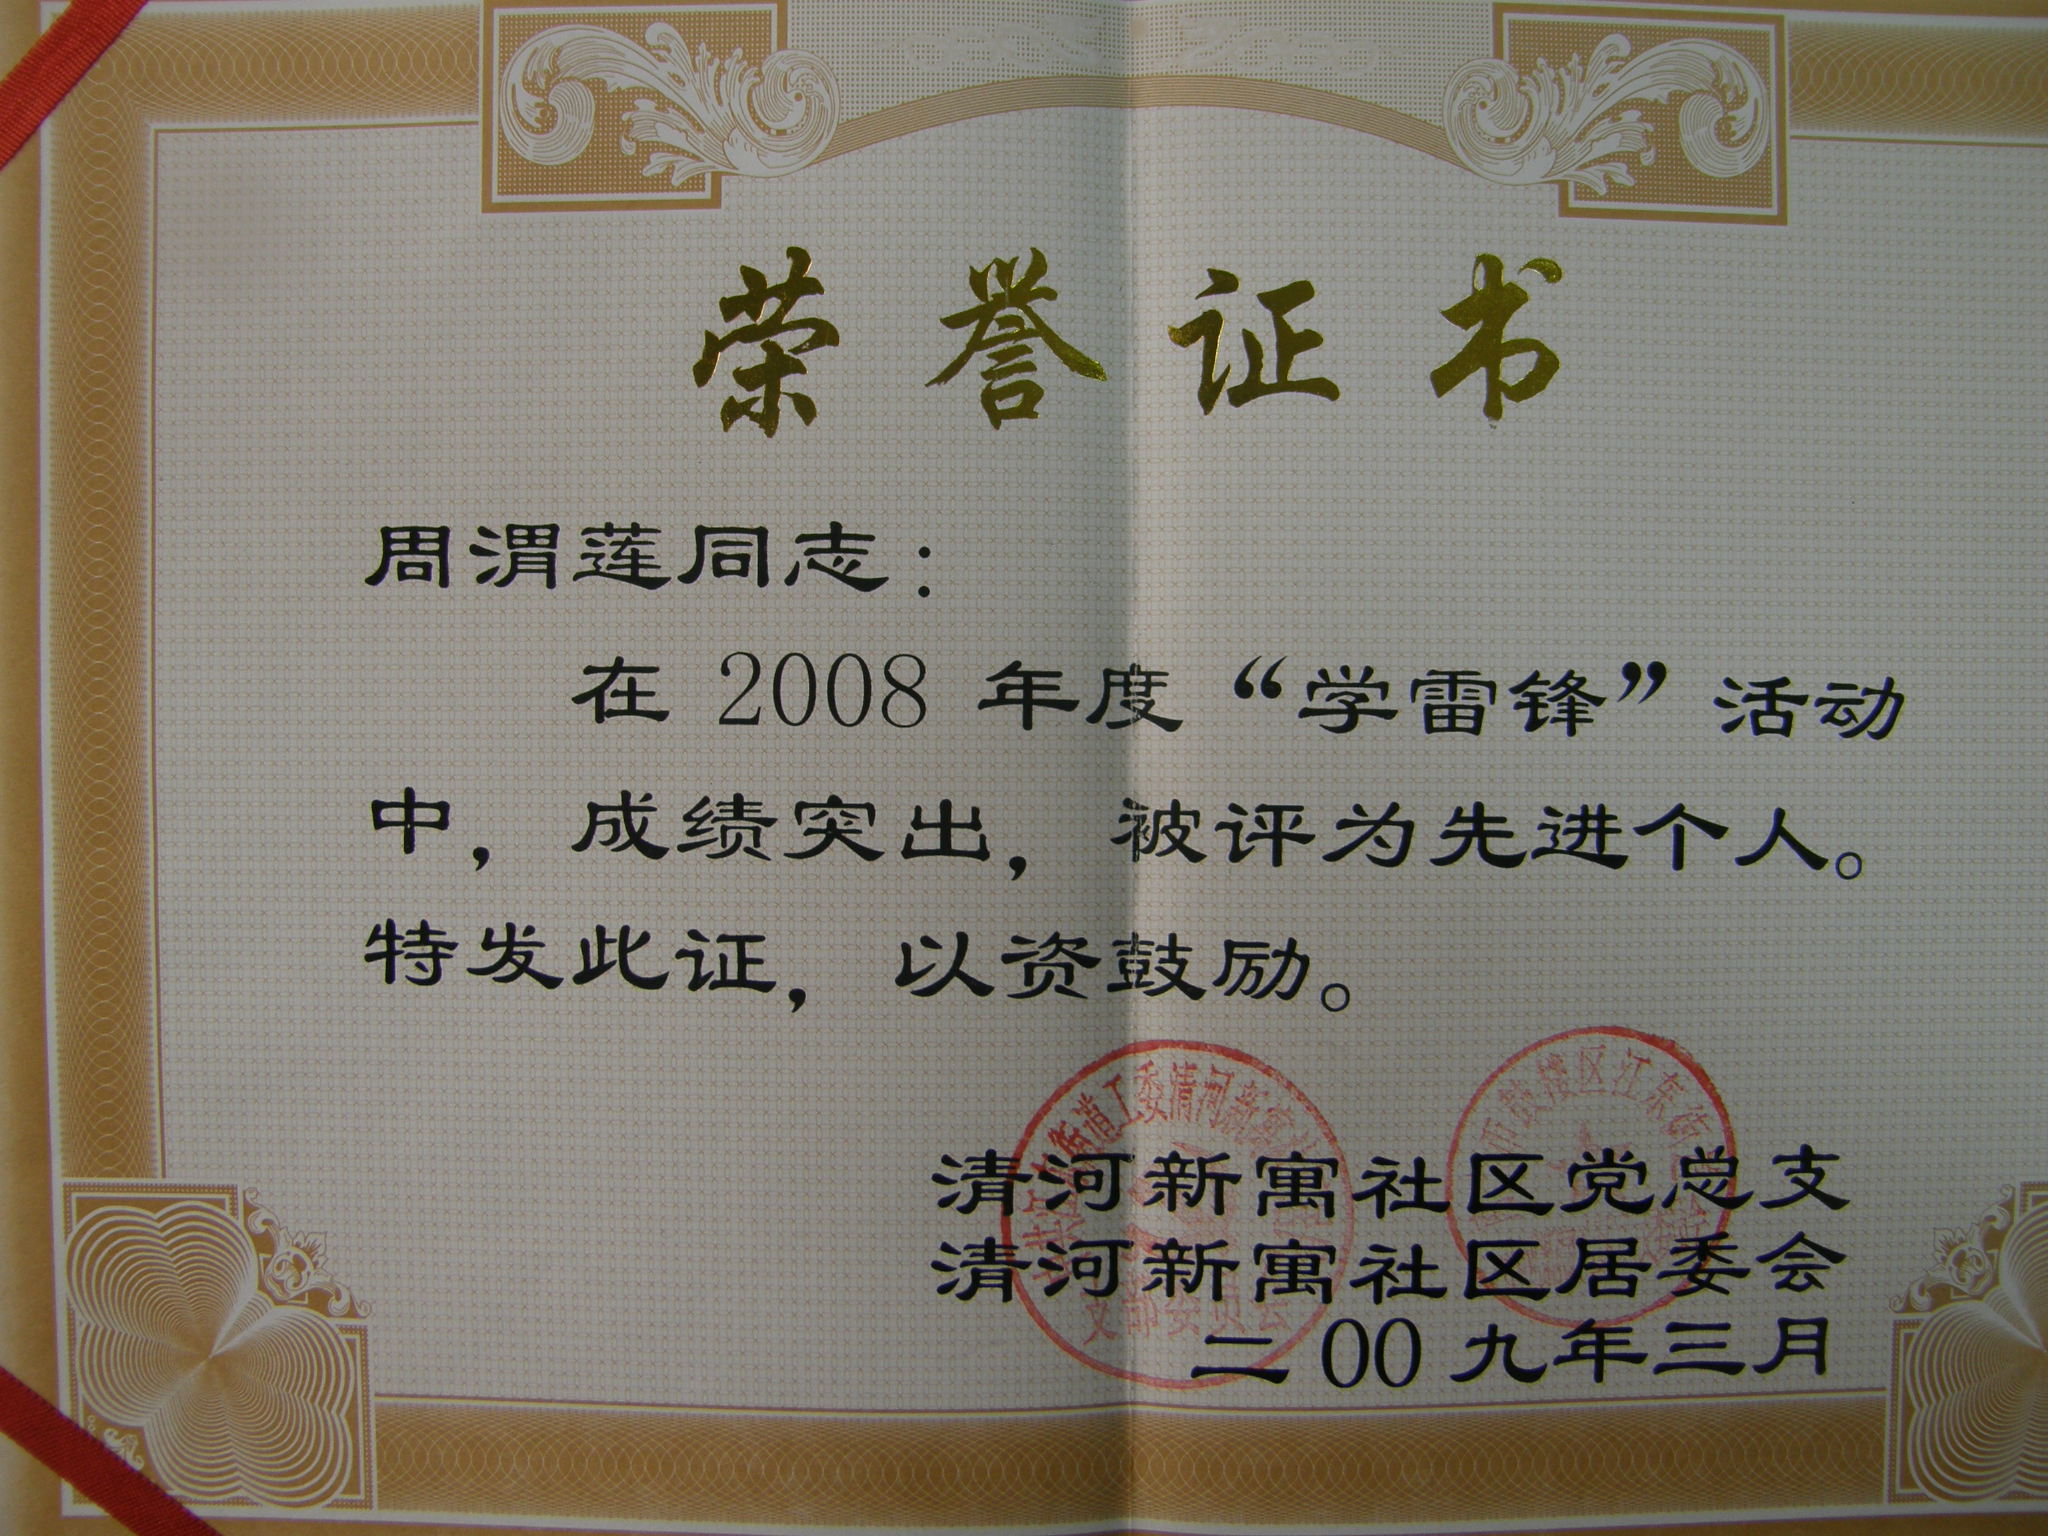 荣誉证书
周渭莲同志：
在 2008 年度“学雷锋”活动
中，成绩突出，被评为先进个人。
特发此证，以资鼓励。
清河新寓社区党总支
清河新寓社区居委会
二00九年三月
街道工委清河新寓
支部委员会
市鼓楼区江东街